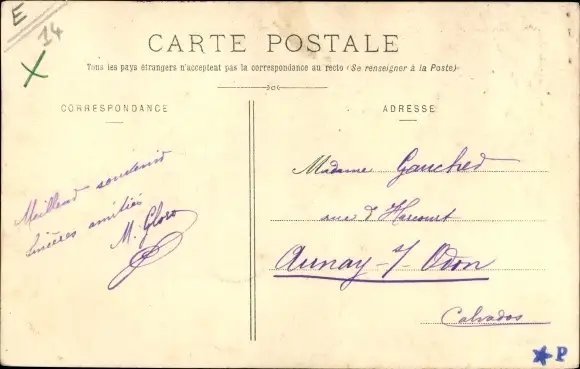 E
14
CARTE POSTALE
Tous les pays étrangers n'acceptent pas la correspondance au recto (Se renseigner à la Poste)
CORRESPONDANCE
Meilleur souvenir
Sincères amitiés
M. Gloro
ADRESSE
Madame Gauched
rue d'Harcourt
Aunay-s/-Odon
Calvados
P